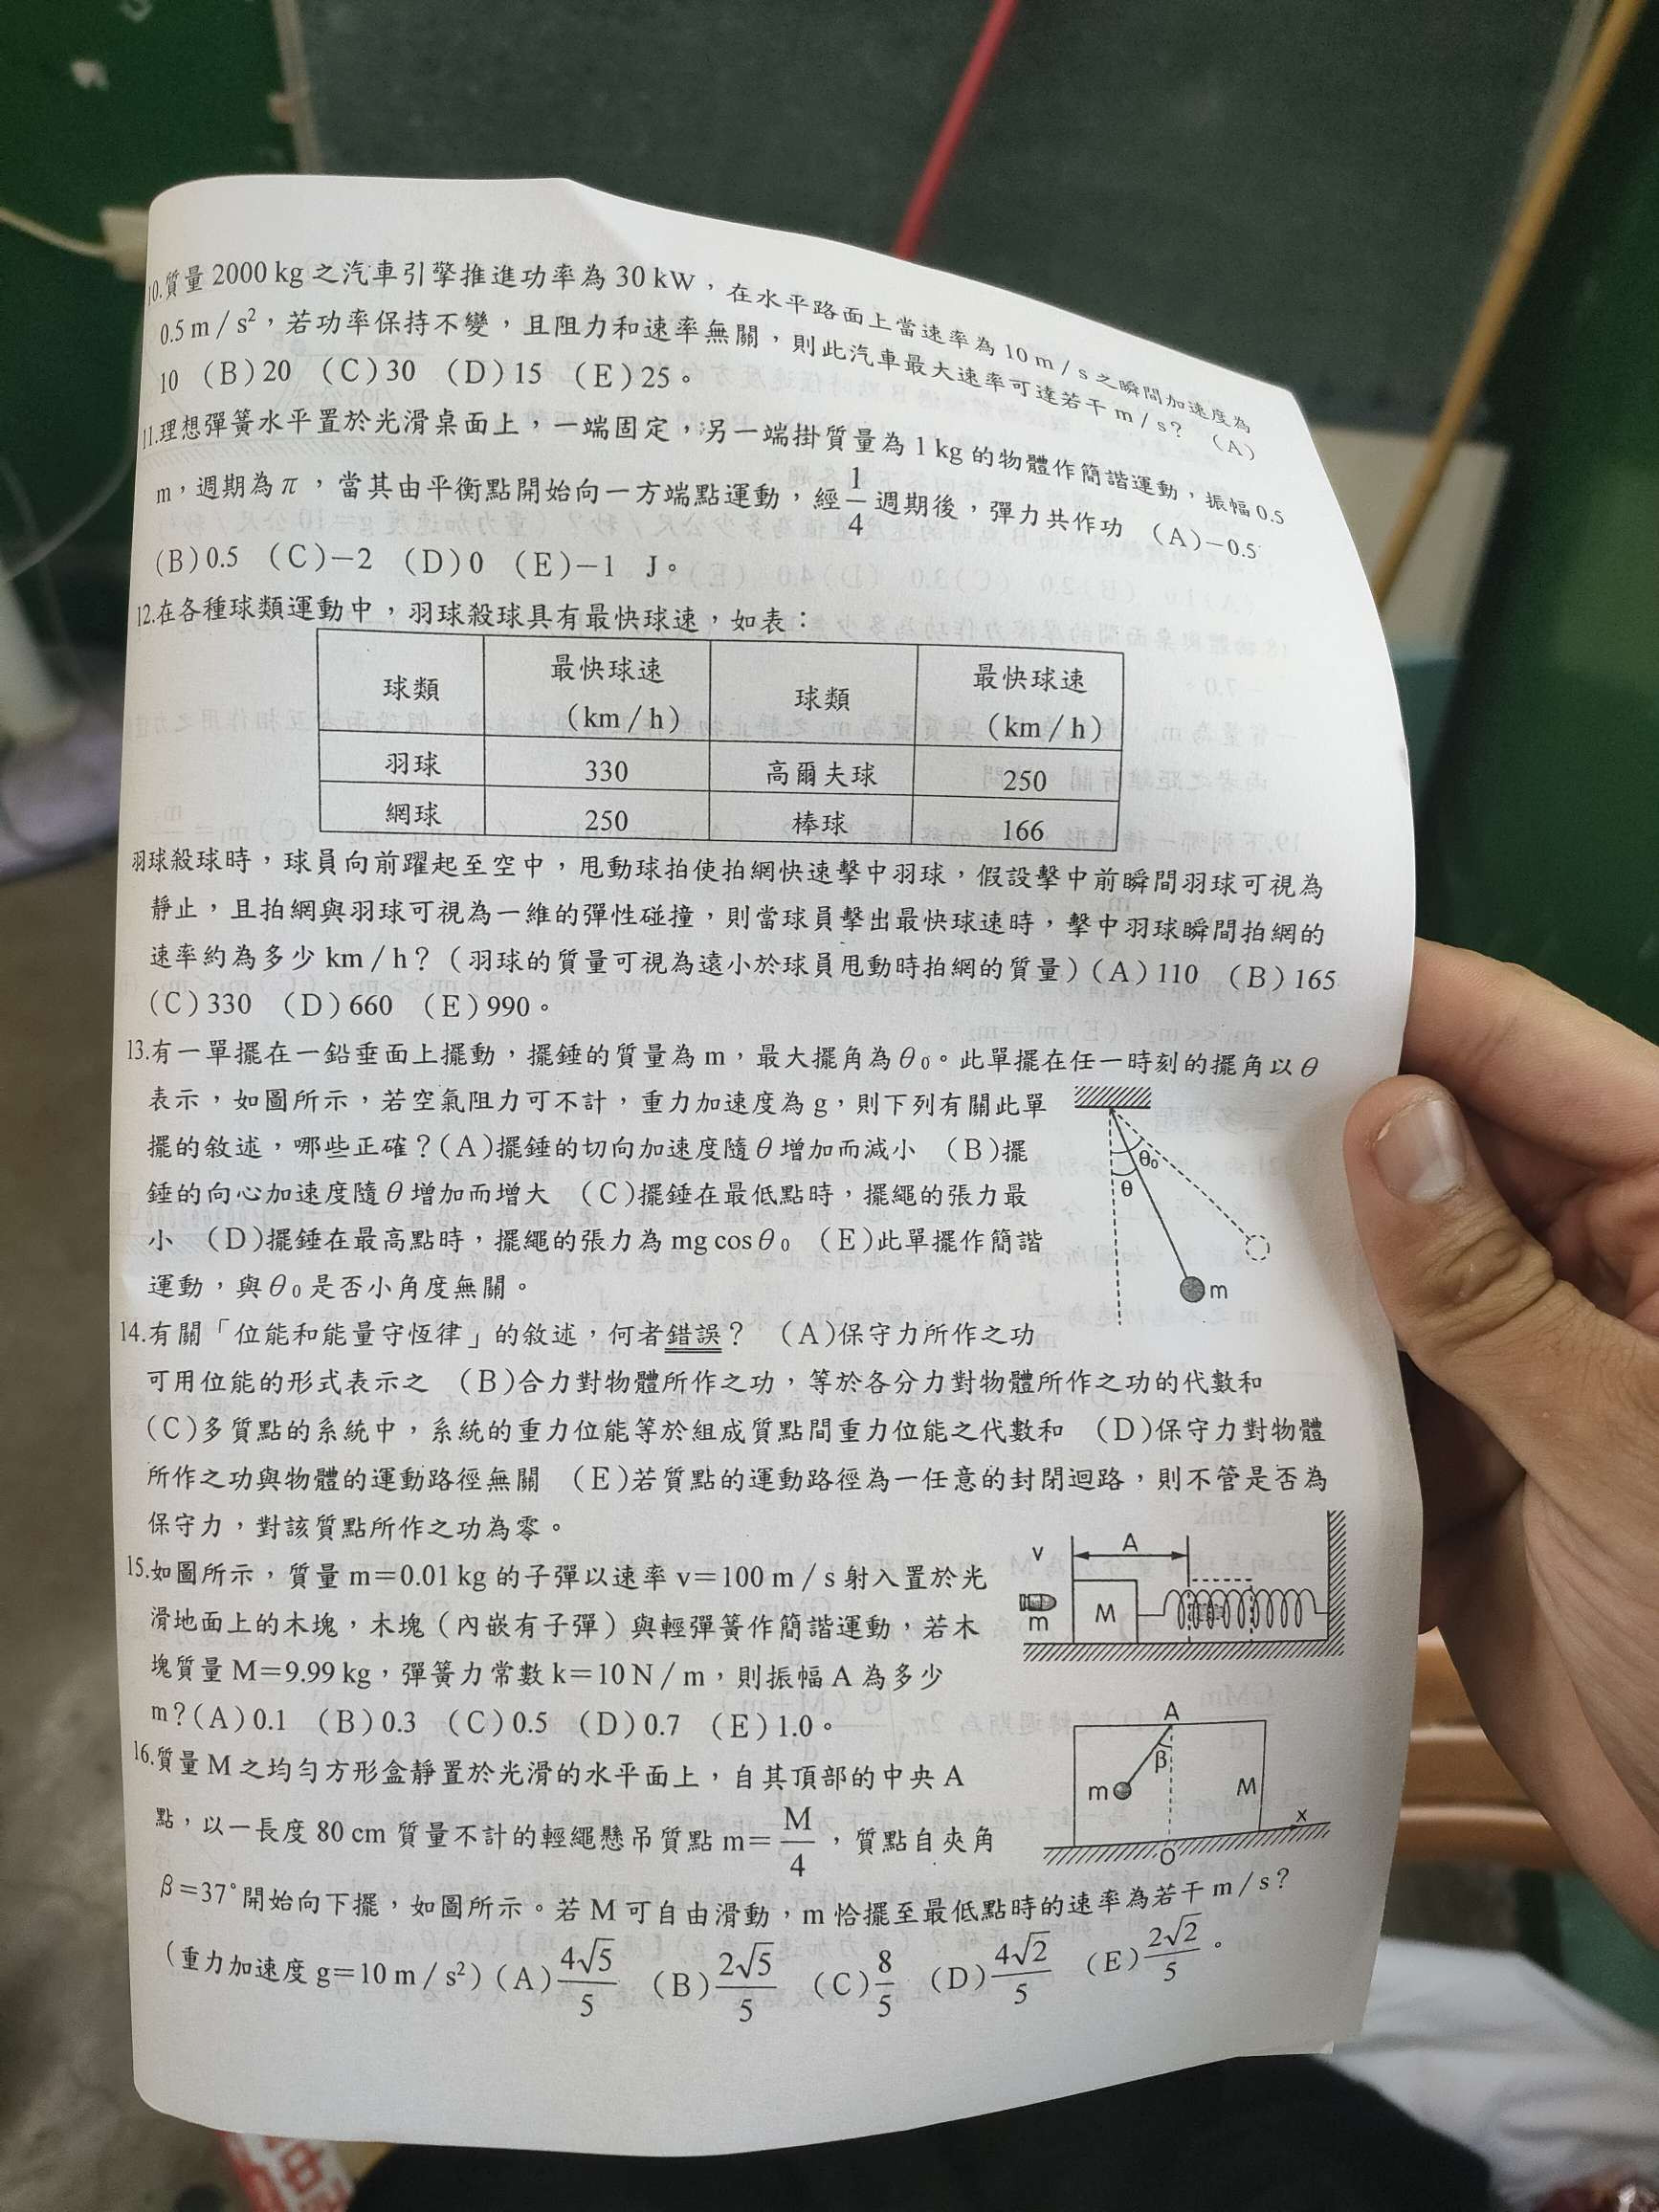 10.質量 2000 kg 之汽車引擎推進功率為 30 kW，在水平路面上當速率為 10 m / s 之瞬間加速度為
0.5 m / s²，若功率保持不變，且阻力和速率無關，則此汽車最大速率可達若干 m / s？ (A)
10 (B)20 (C)30 (D)15 (E)25。
11.理想彈簧水平置於光滑桌面上，一端固定，另一端掛質量為 1 kg 的物體作簡諧運動，振幅 0.5
m，週期為π，當其由平衡點開始向一方端點運動，經 1/4 週期後，彈力共作功 (A)−0.5
(B)0.5 (C)−2 (D)0 (E)−1 J。
12.在各種球類運動中，羽球殺球具有最快球速，如表：
球類 最快球速 (km / h) 球類 最快球速 (km / h)
羽球 330 高爾夫球 250
網球 250 棒球 166
羽球殺球時，球員向前躍起至空中，甩動球拍使拍網快速擊中羽球，假設擊中前瞬間羽球可視為
靜止，且拍網與羽球可視為一維的彈性碰撞，則當球員擊出最快球速時，擊中羽球瞬間拍網的
速率約為多少 km / h？（羽球的質量可視為遠小於球員甩動時拍網的質量）(A)110 (B)165
(C)330 (D)660 (E)990。
13.有一單擺在一鉛垂面上擺動，擺錘的質量為 m，最大擺角為θ₀。此單擺在任一時刻的擺角以θ
表示，如圖所示，若空氣阻力可不計，重力加速度為 g，則下列有關此單
擺的敘述，哪些正確？(A)擺錘的切向加速度隨θ增加而減小 (B)擺
錘的向心加速度隨θ增加而增大 (C)擺錘在最低點時，擺繩的張力最
小 (D)擺錘在最高點時，擺繩的張力為 mg cosθ₀ (E)此單擺作簡諧
運動，與θ₀是否小角度無關。
θ₀
θ
m
14.有關「位能和能量守恆律」的敘述，何者錯誤？ (A)保守力所作之功
可用位能的形式表示之 (B)合力對物體所作之功，等於各分力對物體所作之功的代數和
(C)多質點的系統中，系統的重力位能等於組成質點間重力位能之代數和 (D)保守力對物體
所作之功與物體的運動路徑無關 (E)若質點的運動路徑為一任意的封閉迴路，則不管是否為
保守力，對該質點所作之功為零。
15.如圖所示，質量 m=0.01 kg 的子彈以速率 v=100 m / s 射入置於光
滑地面上的木塊，木塊（內嵌有子彈）與輕彈簧作簡諧運動，若木
塊質量 M=9.99 kg，彈簧力常數 k=10 N / m，則振幅 A 為多少
m？(A)0.1 (B)0.3 (C)0.5 (D)0.7 (E)1.0。
v A
m M
16.質量 M 之均勻方形盒靜置於光滑的水平面上，自其頂部的中央 A
點，以一長度 80 cm 質量不計的輕繩懸吊質點 m= M/4 ，質點自夾角
β=37°開始向下擺，如圖所示。若 M 可自由滑動，m 恰擺至最低點時的速率為若干 m / s？
（重力加速度 g=10 m / s²）(A) 4√5/5 (B) 2√5/5 (C) 8/5 (D) 4√2/5 (E) 2√2/5 。
A
β
m M
x
O